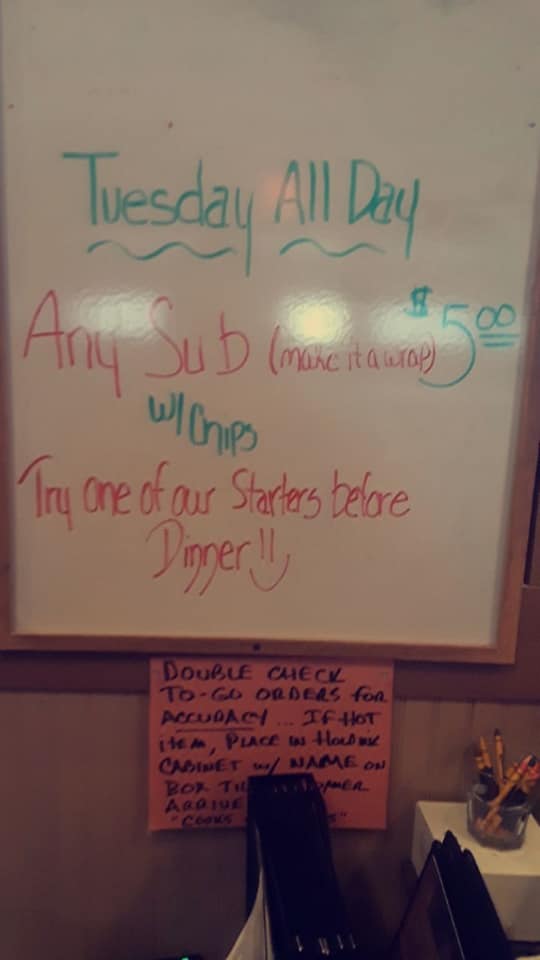 Tuesday All Day
Any Sub (make it a wrap) $5.00
w/ Chips
Try one of our Starters before
Dinner!!
DOUBLE CHECK
TO-GO ORDERS for
ACCURACY... IF HOT
ITEM, PLACE IN HOLDING
CABINET w/ NAME ON
BOX
ARRIVE
"COOKS